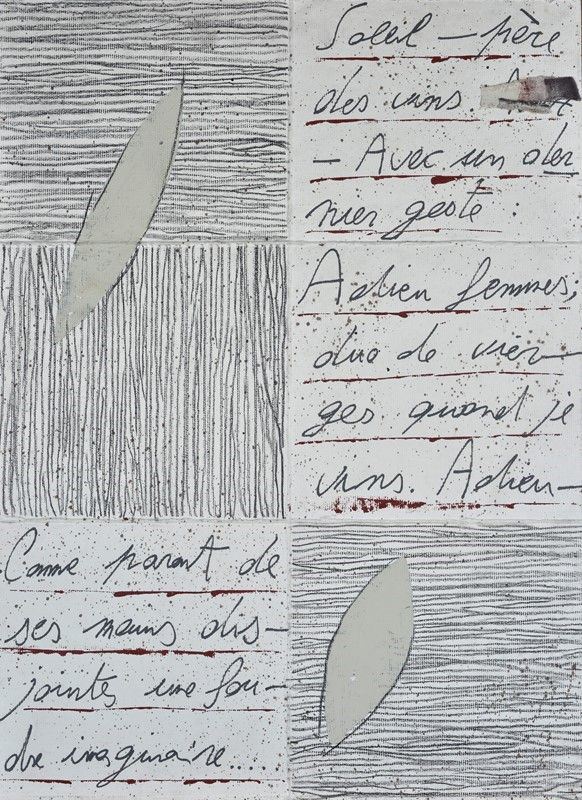 Soleil — père
des vins.
— Avec un der
nier geste :
Adieu femmes;
duo de vier—
ges quand je
vins. Adieu—
Comme parant de
ses mains dis—
jointes une fou—
dre imaginaire....